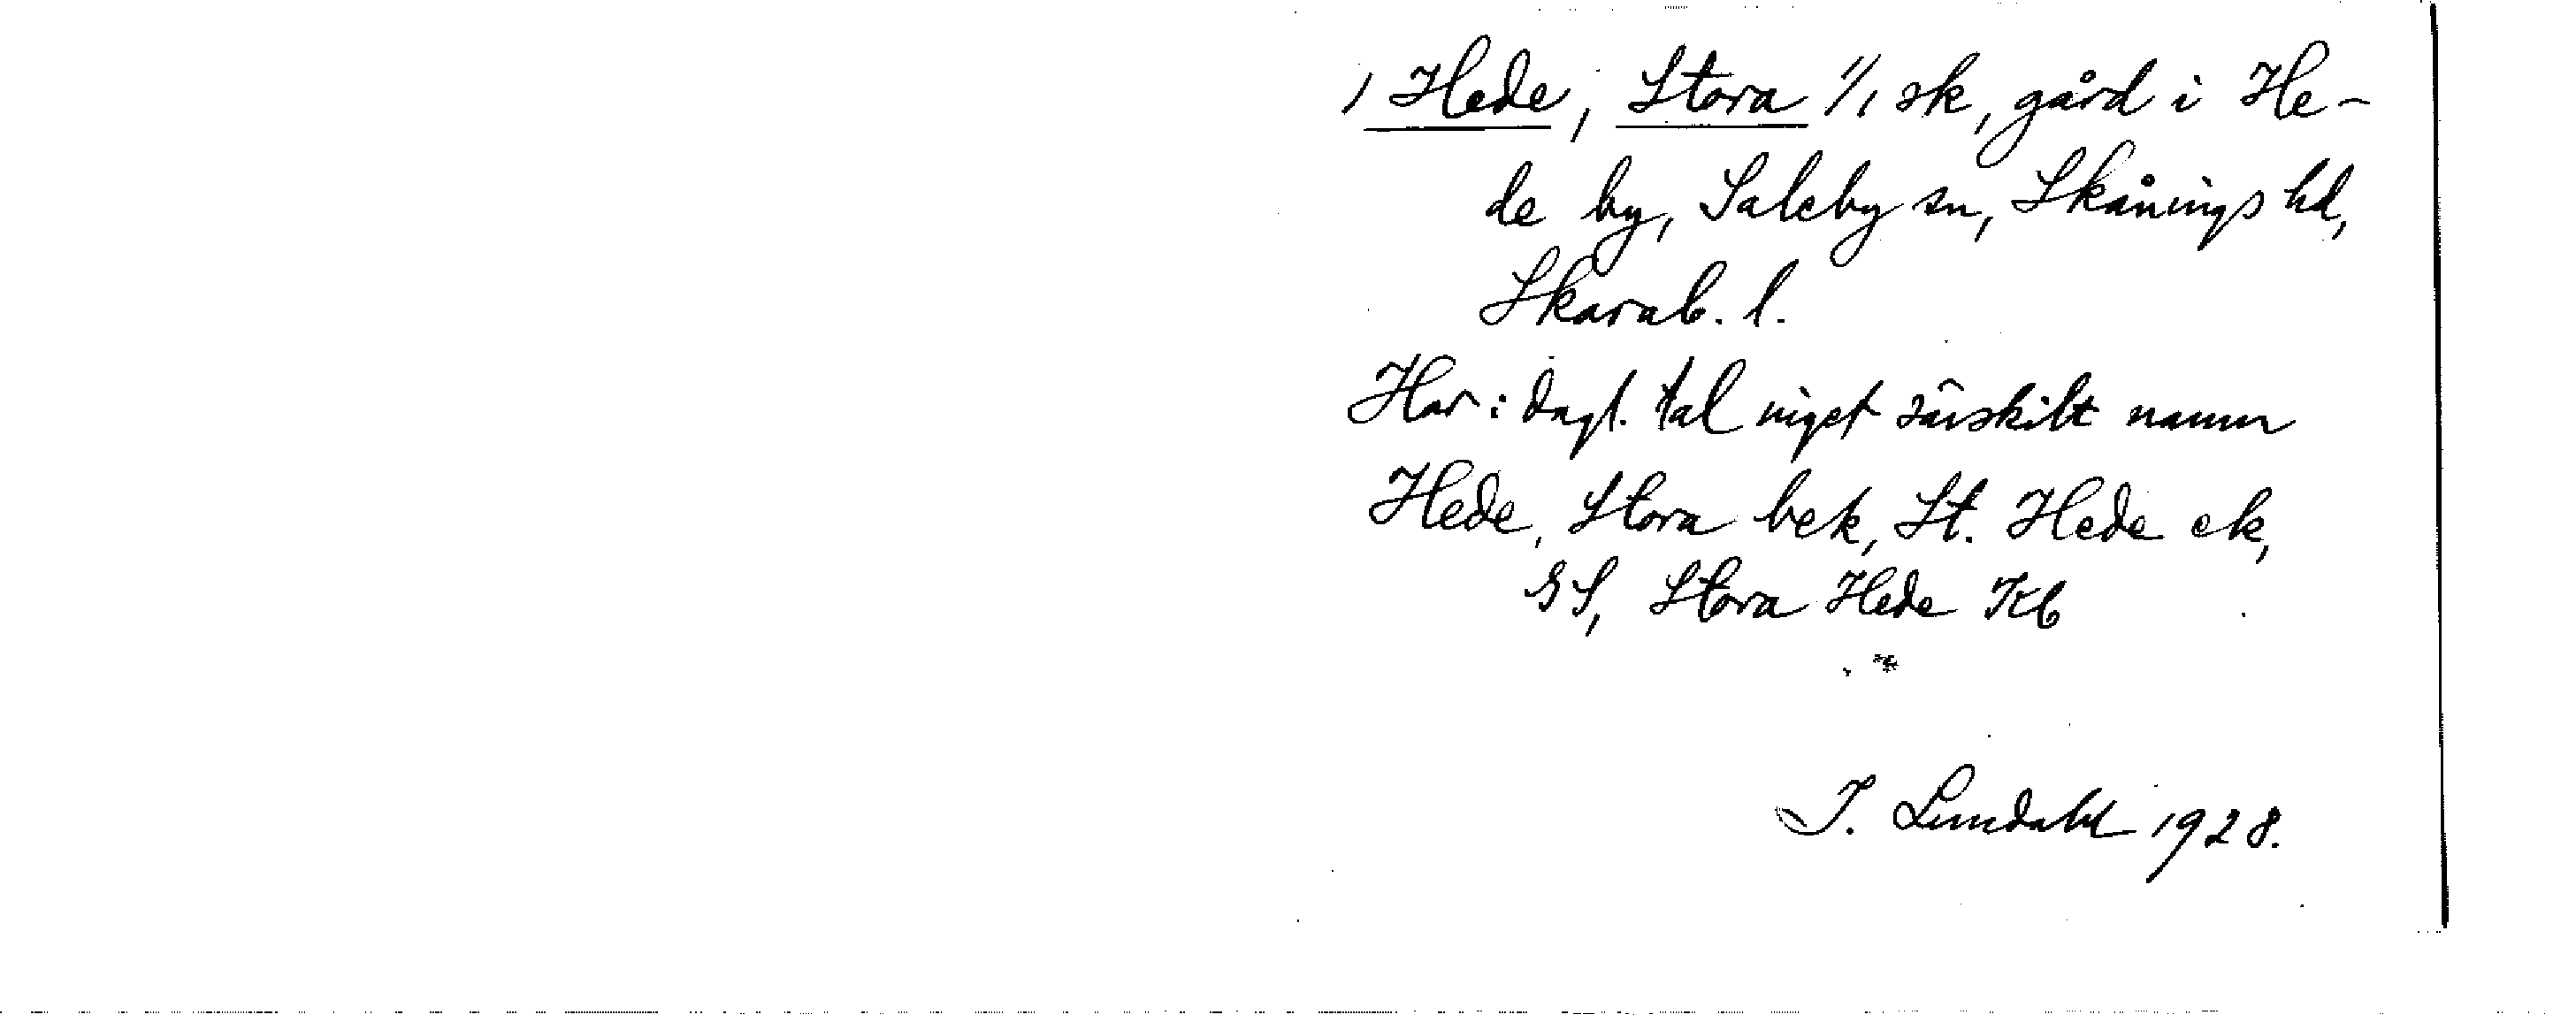 1 Hede, Stora 1/1 sk, gård i He-
de by, Saleby sn, Skånings hd,
Skarab. l.
Har i dagl. tal niget särskilt namn
Hede, Stora bek, St. Hede ek,
GS, Stora Hede Kb
I. Lundahl 1928.